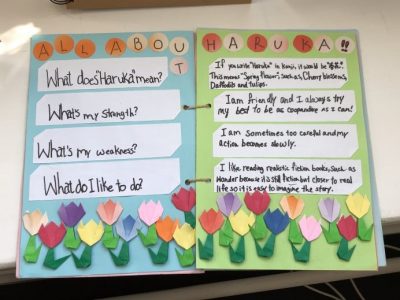 ALL ABOUT
What does "Haruka" mean?
What's my strength?
What's my weakness?
What do I like to do?
HARUKA!!
If you write "Haruka" in Kanji, it would be "春花".
This means "Spring flower", such as, Cherry blossoms,
Daffodils and tulips.
I am friendly and I always try
my best to be as cooperative as I can!
I am sometimes too careful and my
action becomes slowly.
I like reading realistic fiction books, such as
Wonder because it is still fiction but closer to real
life so it is easy to imagine the story.